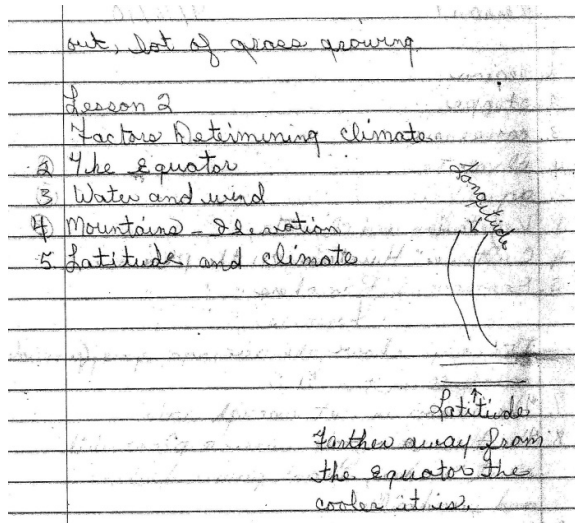 out, lot of grass growing
Lesson 2
Factors Determining climate
2 The Equator
3 Water and wind
4 Mountains - Elevation
5 Latitude and climate
Longitude
Latitude
Farther away from
the equator the
cooler it is.